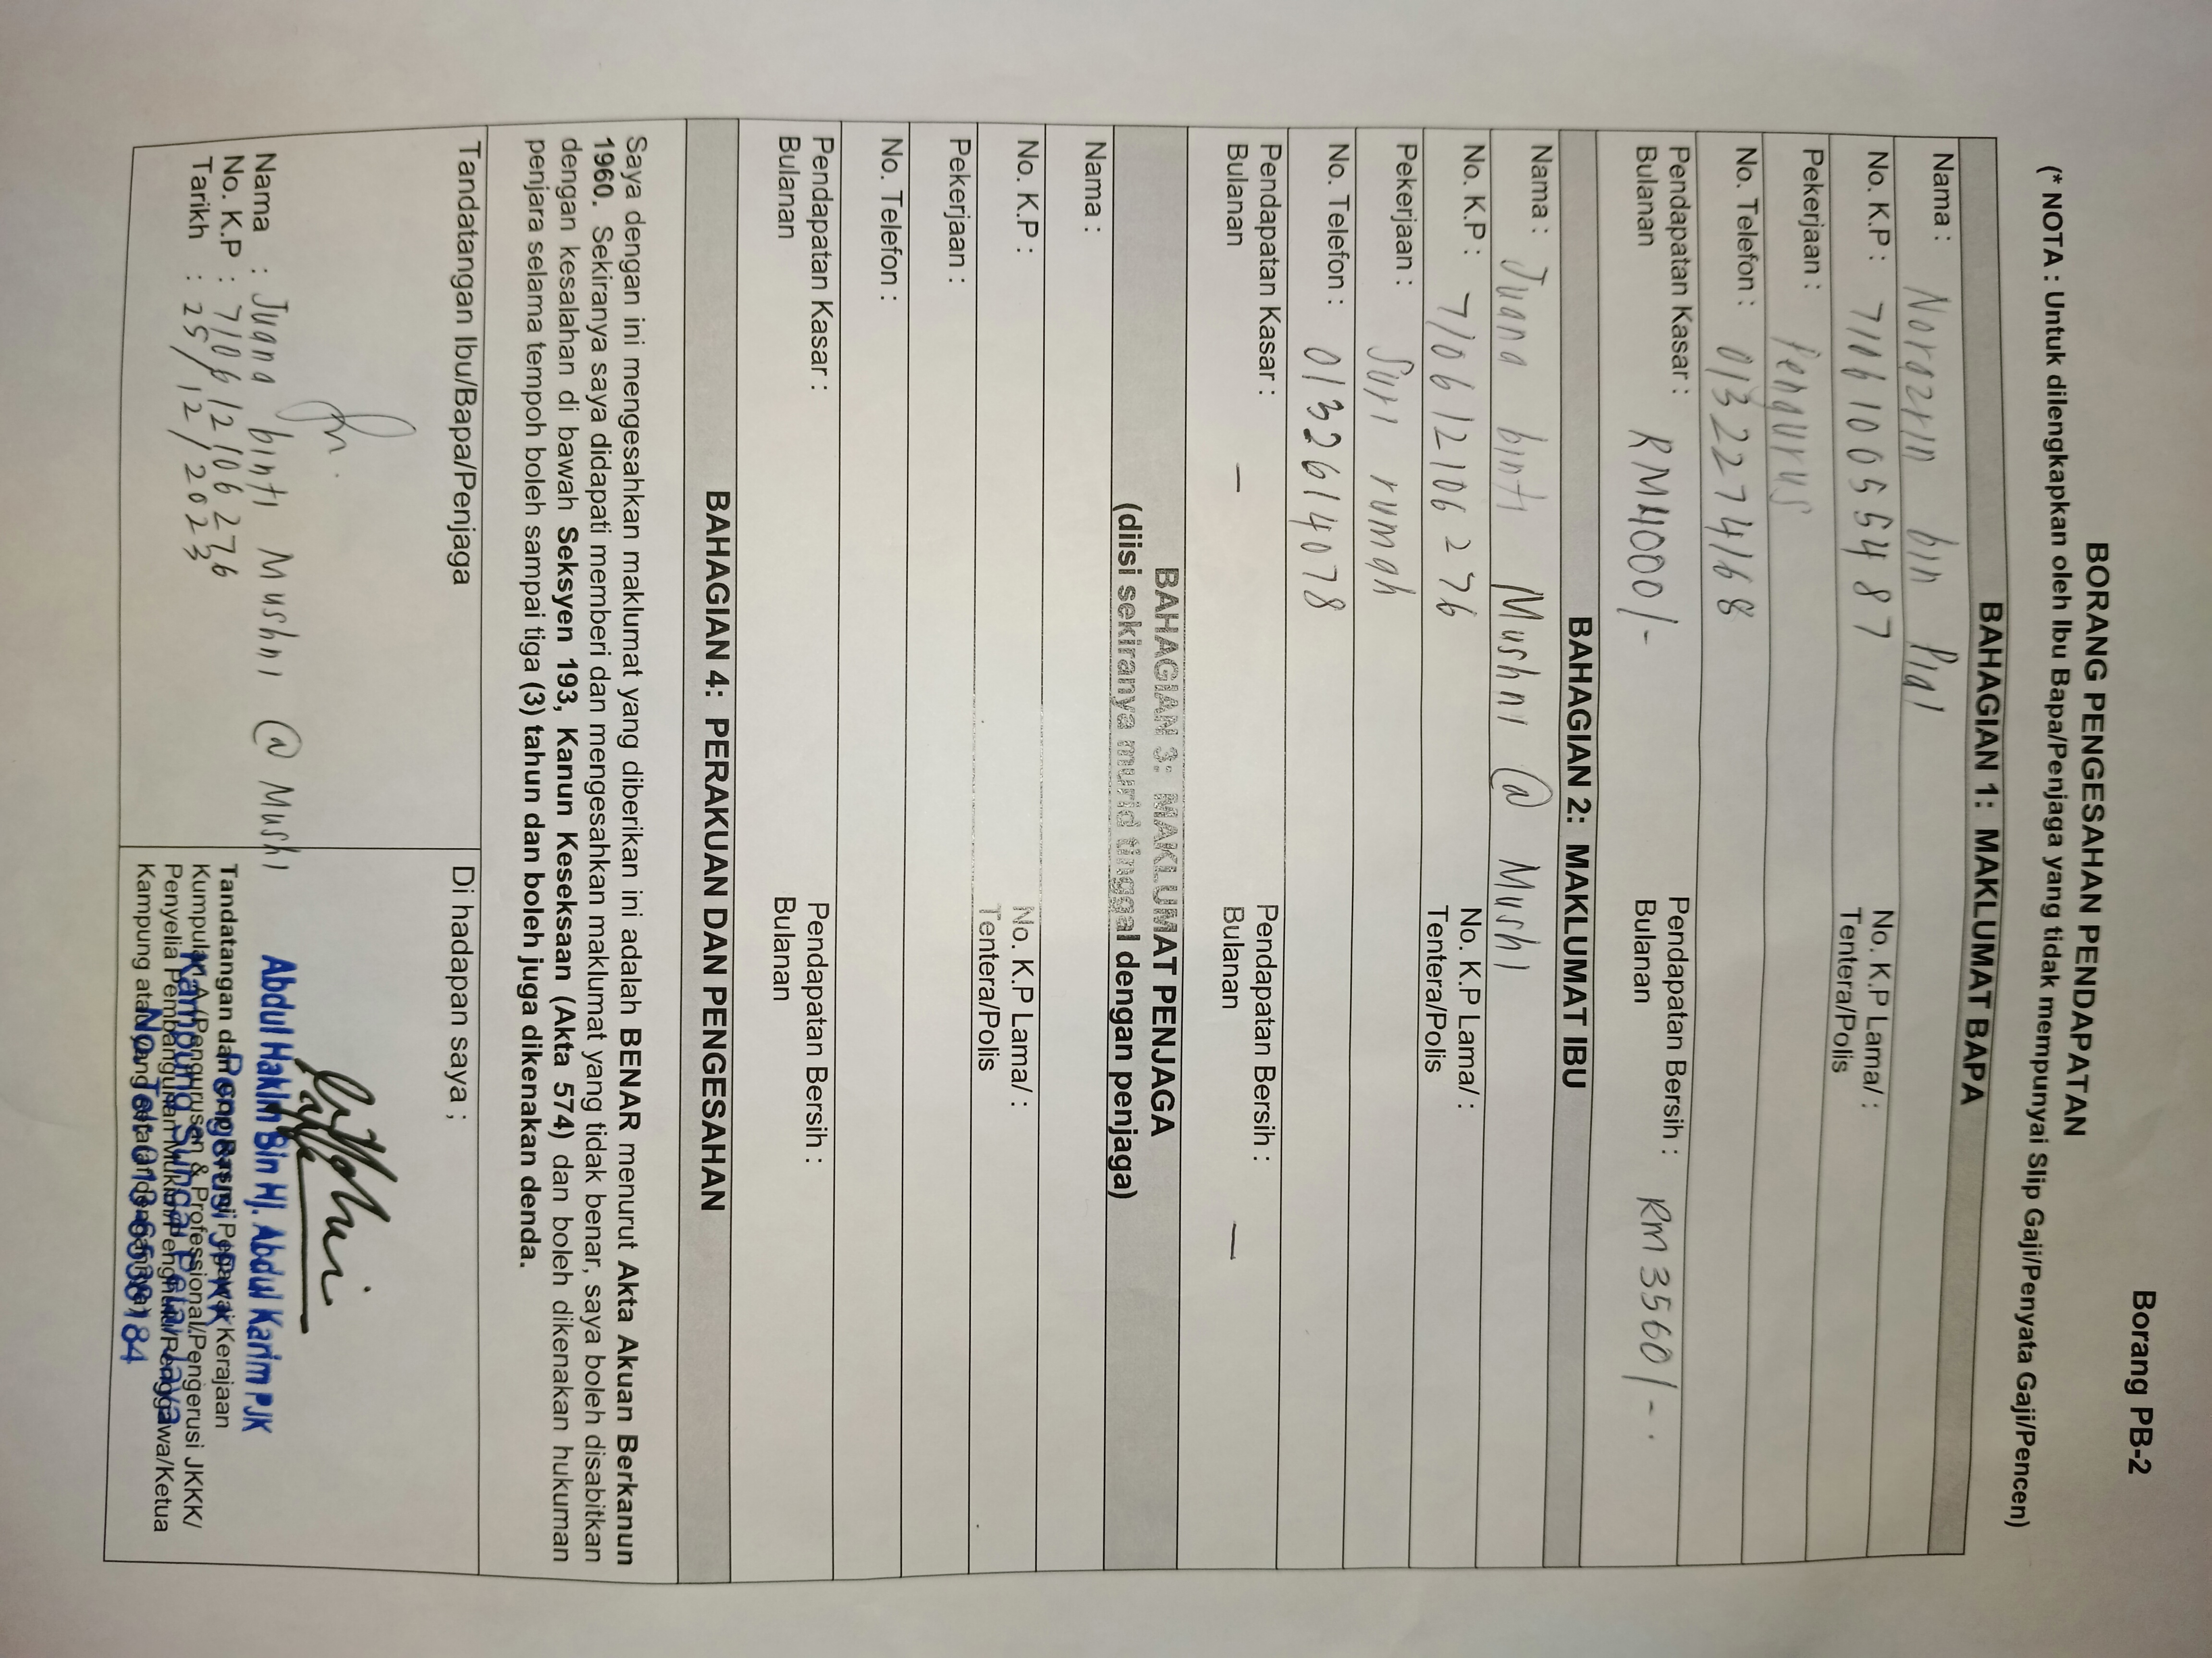 Borang PB-2
BORANG PENGESAHAN PENDAPATAN
(* NOTA : Untuk dilengkapkan oleh Ibu Bapa/Penjaga yang tidak mempunyai Slip Gaji/Penyata Gaji/Pencen)
BAHAGIAN 1: MAKLUMAT BAPA
Nama : Norazrin bin Pial
No. K.P : 710610055487 No. K.P Lama/ :
Tentera/Polis
Pekerjaan : Pengurus
No. Telefon : 0132274168
Pendapatan Kasar : RM4000/- Pendapatan Bersih : RM 3560/-.
Bulanan Bulanan
BAHAGIAN 2: MAKLUMAT IBU
Nama : Juana binti Mushni @ Mushi
No. K.P : 710612106276 No. K.P Lama/ :
Tentera/Polis
Pekerjaan : Suri rumah
No. Telefon : 0132614078
Pendapatan Kasar : — Pendapatan Bersih : —
Bulanan Bulanan
BAHAGIAN 3: MAKLUMAT PENJAGA
(diisi sekiranya murid tinggal dengan penjaga)
Nama :
No. K.P : No. K.P Lama/ :
Tentera/Polis
Pekerjaan :
No. Telefon :
Pendapatan Kasar : Pendapatan Bersih :
Bulanan Bulanan
BAHAGIAN 4: PERAKUAN DAN PENGESAHAN
Saya dengan ini mengesahkan maklumat yang diberikan ini adalah BENAR menurut Akta Akuan Berkanun
1960. Sekiranya saya didapati memberi dan mengesahkan maklumat yang tidak benar, saya boleh disabitkan
dengan kesalahan di bawah Seksyen 193, Kanun Keseksaan (Akta 574) dan boleh dikenakan hukuman
penjara selama tempoh boleh sampai tiga (3) tahun dan boleh juga dikenakan denda.
Tandatangan Ibu/Bapa/Penjaga
Nama : Juana binti Mushni @ Mushi
No. K.P : 710612106276
Tarikh : 25/12/2023
Di hadapan saya ;
Abdul Hakim Bin Hj. Abdul Karim PJK
Pengerusi JPKK
Kampung Sungai Petai Jaya
No. Tel: 013-6538184
Tandatangan dan Cop Rasmi Pegawai Kerajaan
Kumpulan A (Pengurusan & Professional/Pengerusi JKKK/
Penyelia Pembangunan Mukim/Penghulu/Penggawa/Ketua
Kampung atau yang setaraf dengannya)